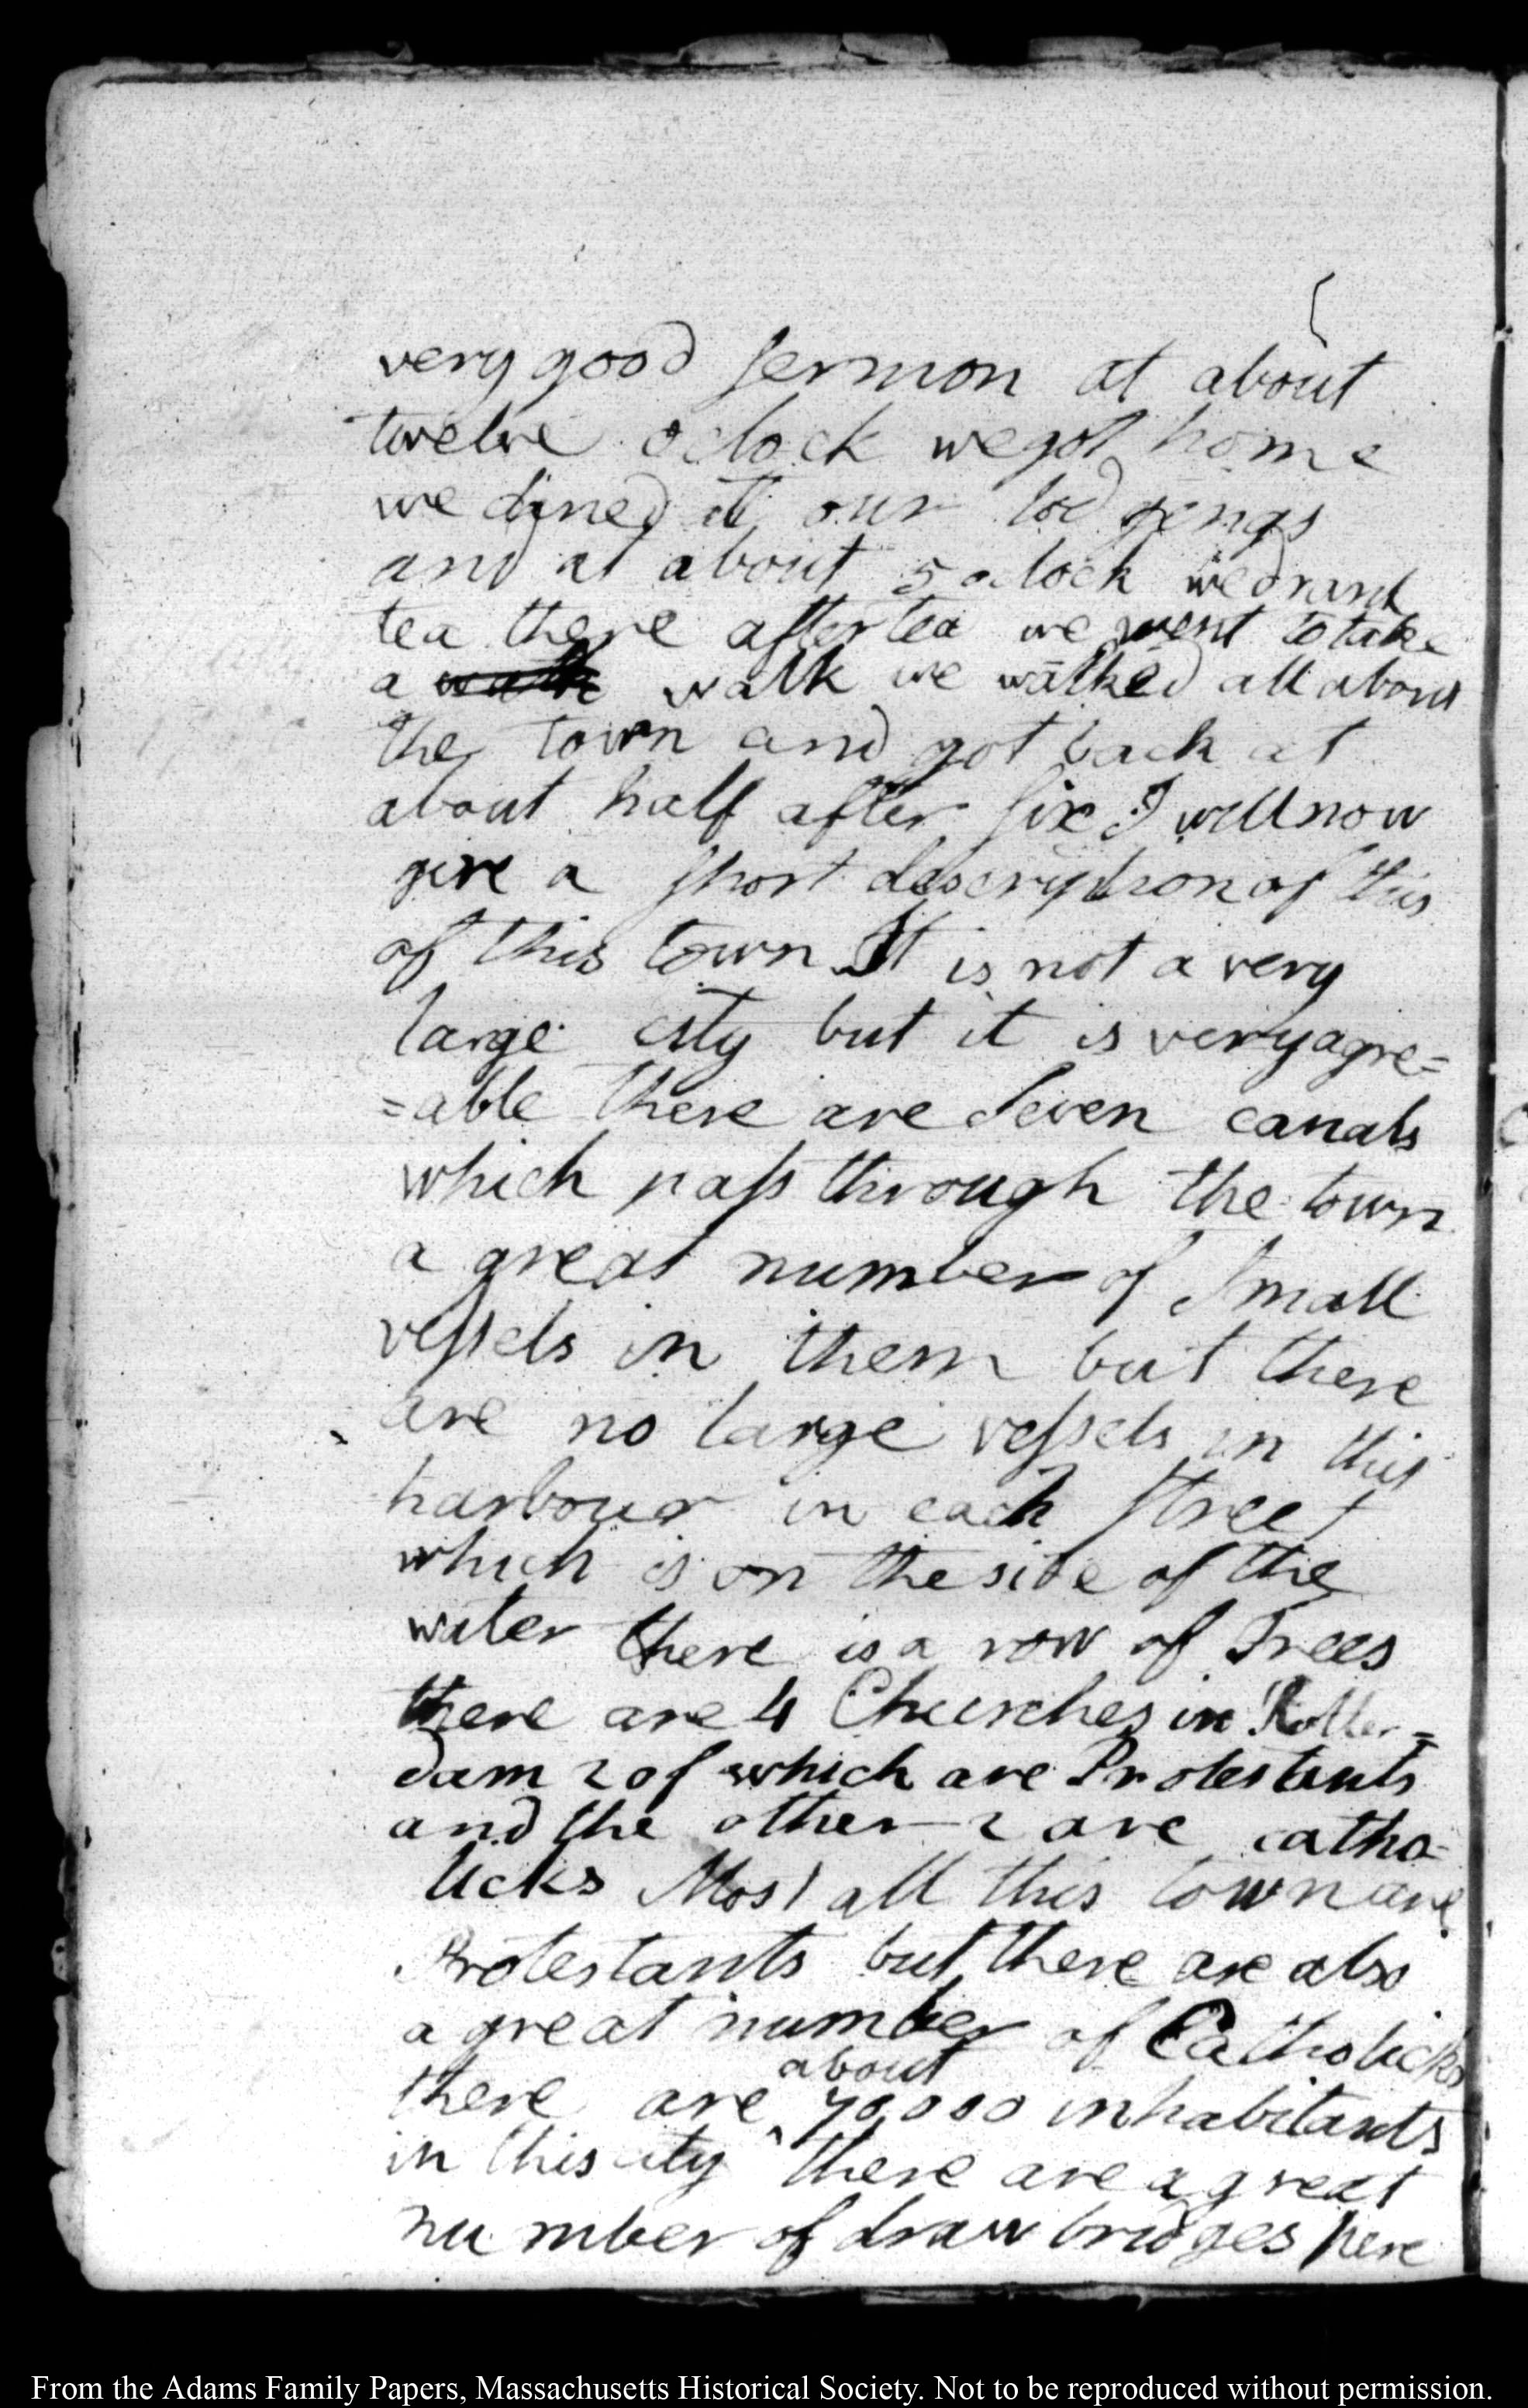 very good sermon at about
twelve oclock we got home
we dined at our lodgengs
and at about 5 oclock we drank
tea there after tea we went to take
a walk we walked all about
the town and got back at
about half after six I will now
give a short description of this
of this town It is not a very
large city but it is very agre=
=able there are Seven canals
which pass through the town
a great number of Small
vessels in them but there
are no large vessels in this
harbour in each street
which is on the side of the
water there is a row of Trees
there are 4 Churches in Rotter=
dam 2 of which are Protestants
and the other 2 are catho-
licks Most all this town are
Protestants but there are also
a great number of Catholicks
about
there are 70,000 inhabitants
in this city there are a great
number of draw bridges here
From the Adams Family Papers, Massachusetts Historical Society. Not to be reproduced without permission.